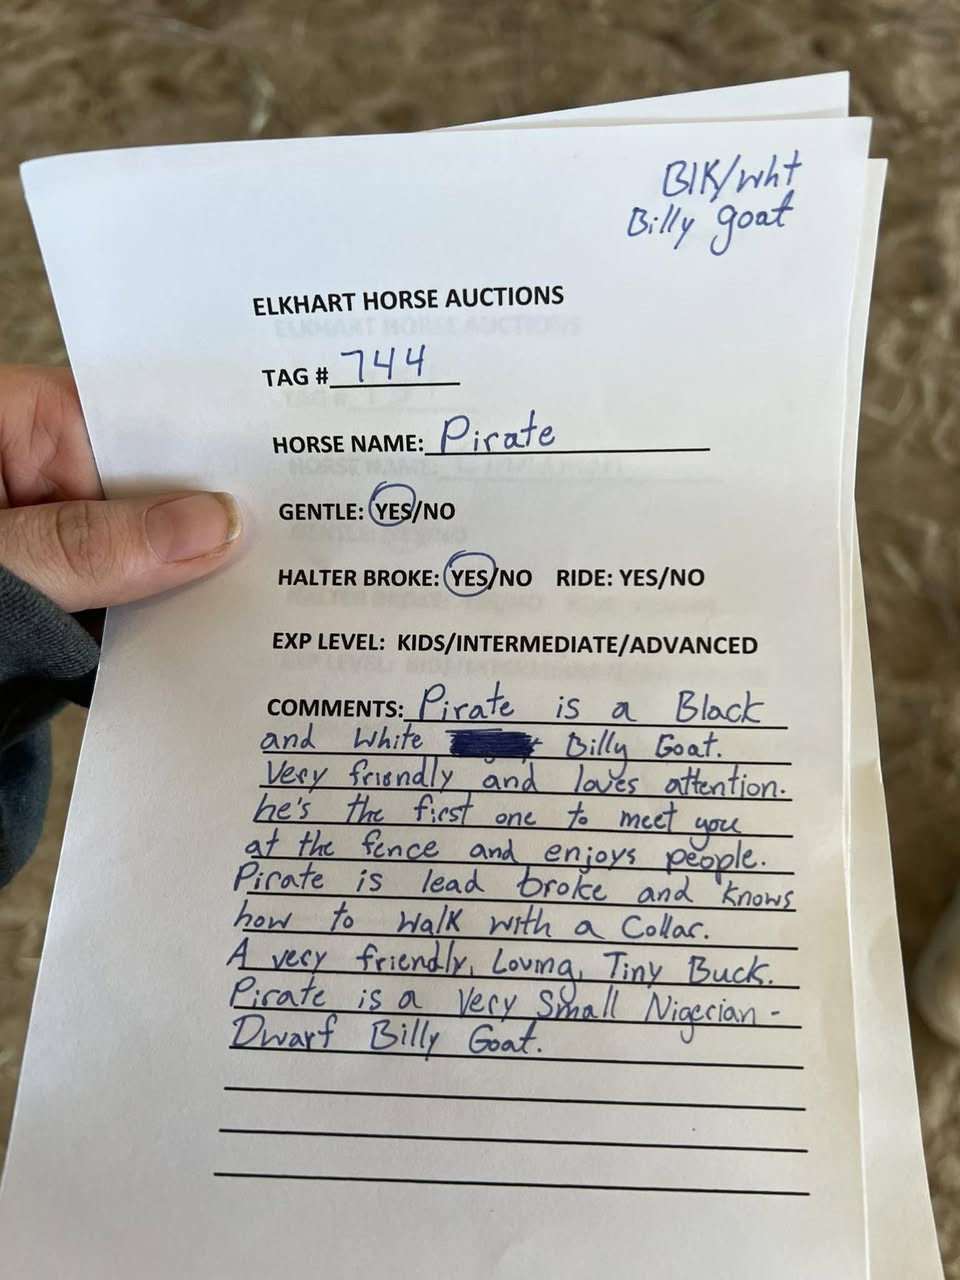 Blk/wht
Billy goat
ELKHART HORSE AUCTIONS
TAG # 744
HORSE NAME: Pirate
GENTLE: YES/NO
HALTER BROKE: YES/NO RIDE: YES/NO
EXP LEVEL: KIDS/INTERMEDIATE/ADVANCED
COMMENTS: Pirate is a Black
and White Billy Goat.
Very friendly and loves attention.
he's the first one to meet you
at the fence and enjoys people.
Pirate is lead broke and knows
how to walk with a Collar.
A very friendly, Loving, Tiny Buck.
Pirate is a Very Small Nigerian -
Dwarf Billy Goat.